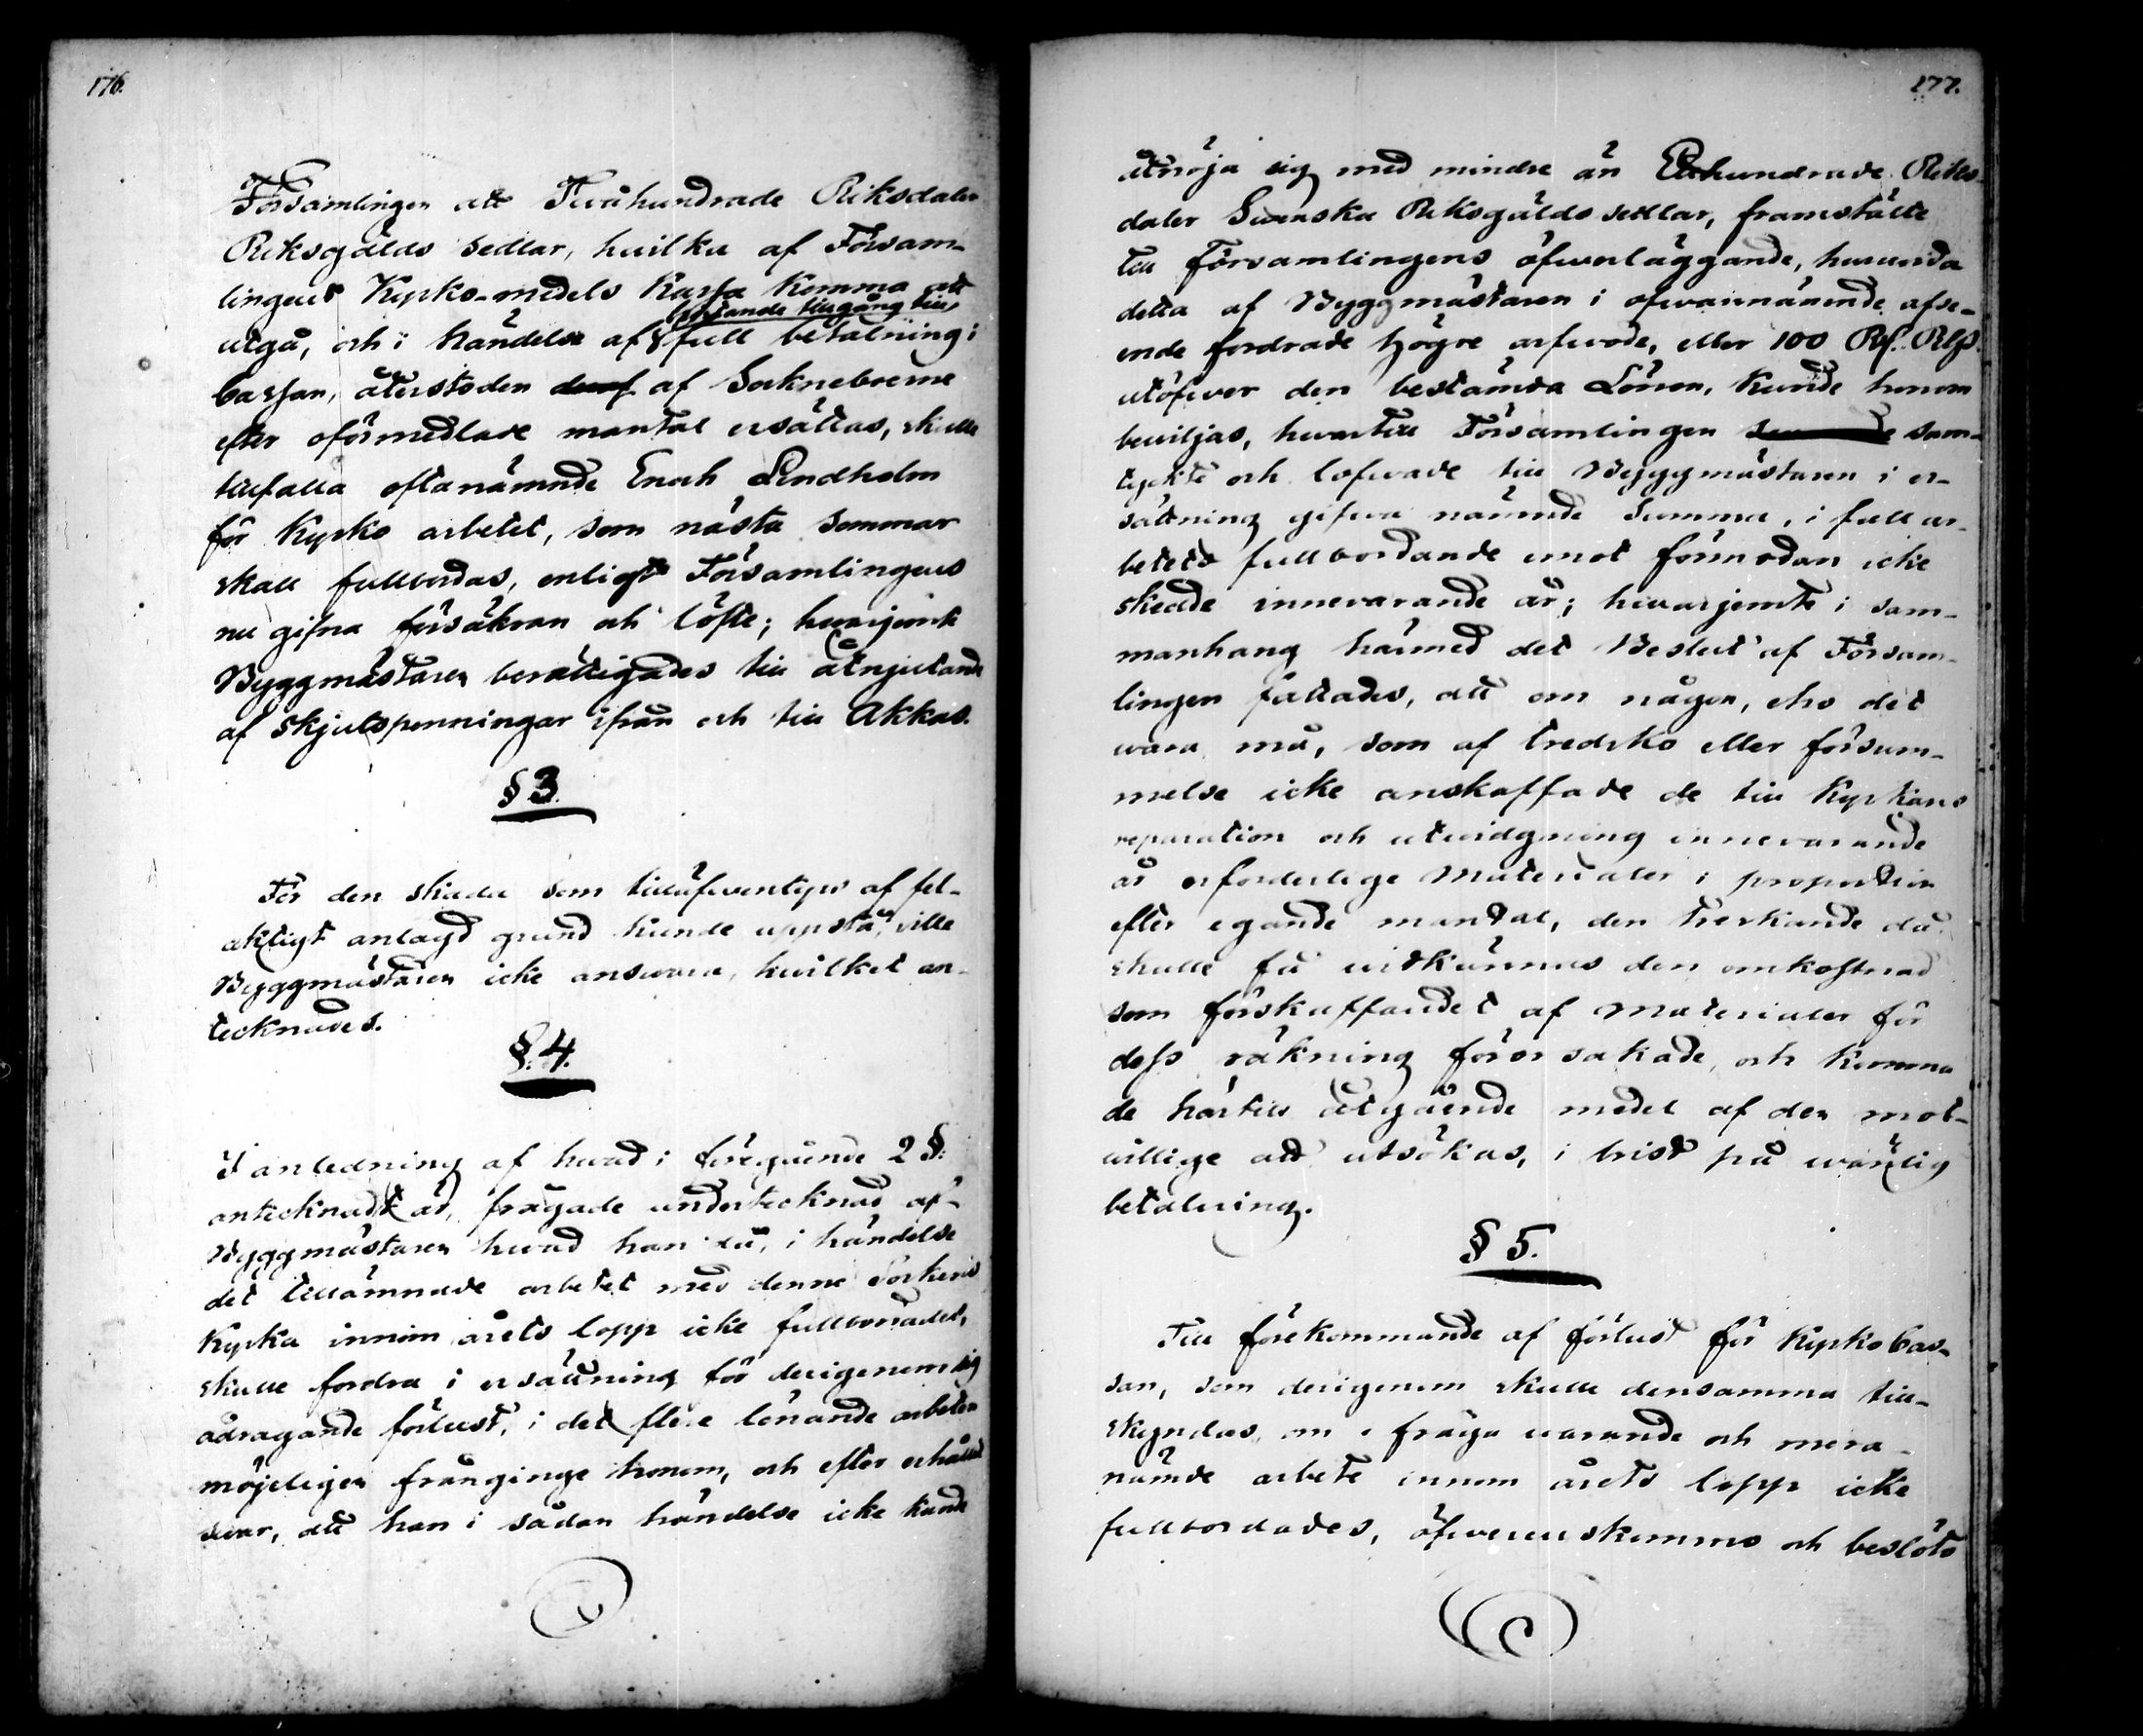 176.
Församlingen att Tvåhundrade Riksdaler
Riksgälds sedlar, hvilka af Försam-
lingens Kyrko-medels Kassa komma att
utgå, och i händelse af felande tillgång till full betalning i
Cassan, återstoden af Sockneboerne
efter oförmedlade mantal ersättas, skulle
tillfalla oftanämnde Enoch Lindholm
för Kyrko arbetet, som nästa sommar
skall fullbordas, enligt Församlingens
nu gifna försäkran och löfte; hvarjemte
Byggmästaren berättigades till åtnjutande
af skjutspenningar ifrån och till Akkas.
§ 3.
För den skada som tilläfventyrs af fel-
aktigt anlagd grund kunde uppstå, ville
Byggmästaren icke answara, hvilket an-
tecknades.
§. 4.
I anledning af hvad i föregående 2 §.
antecknadt är, frågade undertecknad af
Byggmästaren hvad han då, i händelse
det tillämnade arbetet med denne Sockens
Kyrka innom årets lopp icke fullbordades,
skulle fordra i ersättning för derigenom sig
ådragande förlust, i det flere lönande arbeten
möjeligen frånginge honom, och efter erhållit
svar, att han i sådan händelse icke kunde
177.
åtnöja sig med mindre än Etthundrade Riks-
daler Svenska Riksgälds sedlar, framstälte
till Församlingens öfverläggande, huruvida
detta af Byggmästaren i ofvannämnde afse-
ende fordrade högre arfvode, eller 100 Rd. Rgs.
utöfver den bestämda Lönen, kunde honom
beviljas, hvartill Församlingen sam-
tyckte och lofvade till Byggmästaren i er-
sättning gifva nämnde Summa, i fall ar-
betets fullbordande emot förmodan icke
skedde innevarande år; hvarjemte i sam-
manhang härmed det Beslut af Försam-
lingen fattades, att om någon, eho det
wara må, som af tredsko eller försum-
melse icke anskaffade de till Kyrkans
reparation och utvidgning innevarande
år erforderlige Materialer i proportion
efter egande mantal, den treskande då
skulle få vidkännas den omkostnad
som förskaffandet af Materialer för
dess räkning förorsakade, och komma
de härtill åtgående medel af den mot-
willige att utsökas, i brist på wänlig
betalning.
§ 5.
Till förekommande af förlust för Kyrko Cas-
san, som derigenom skulle densamma till-
skyndas, om i fråga warande och mera-
nämde arbete innom årets lopp icke
fullbordades, öfverenskomms och beslöts